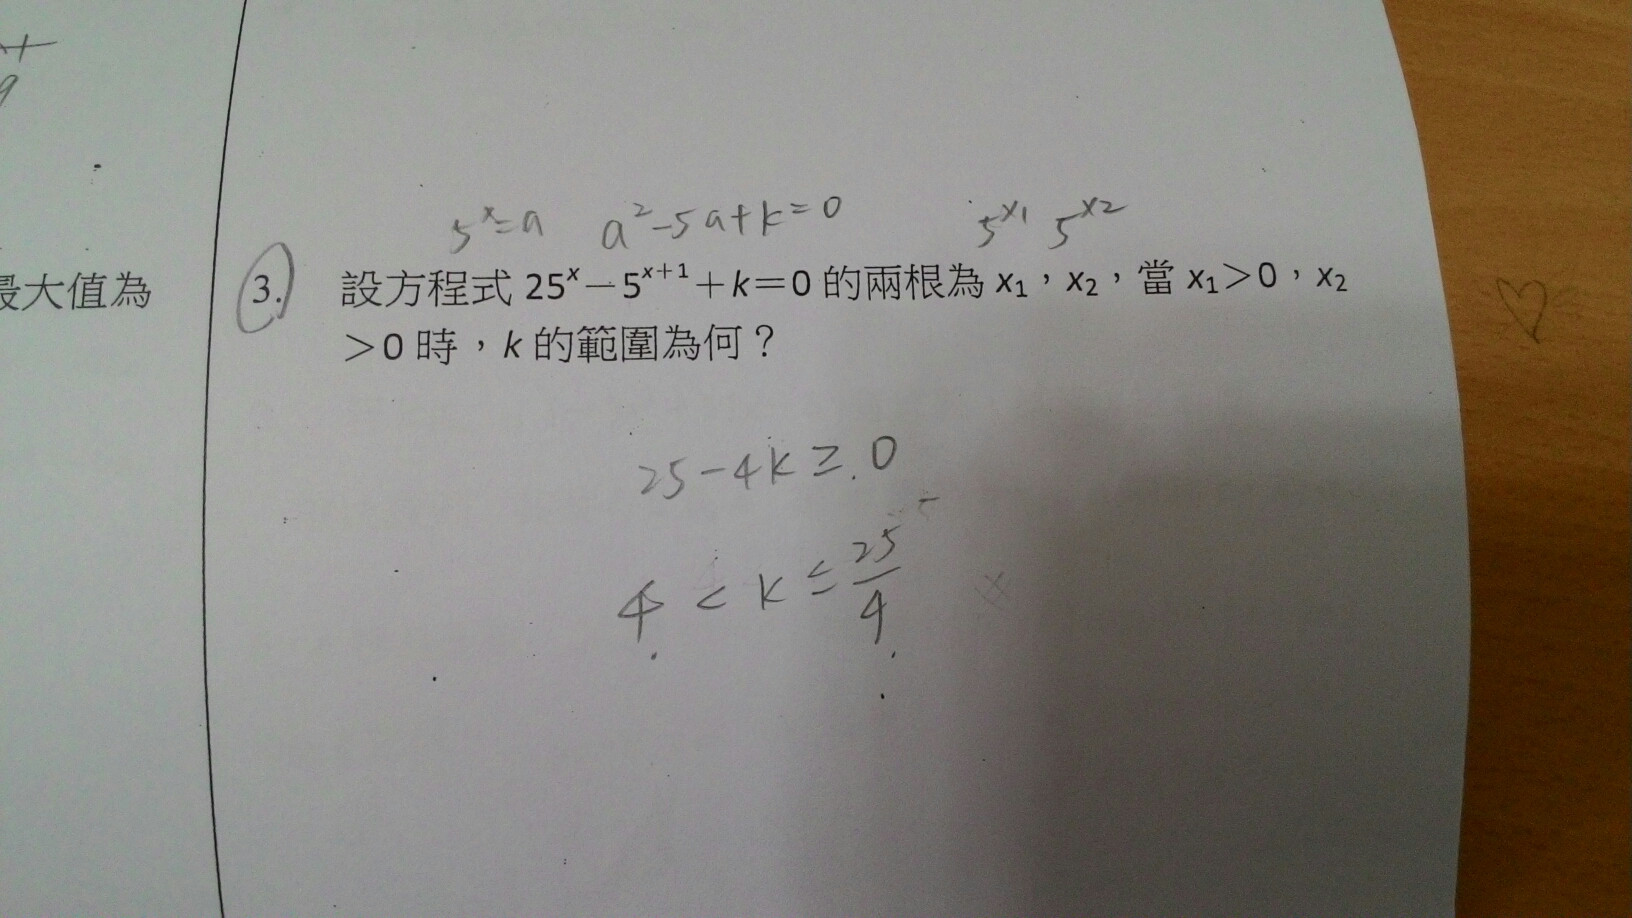 5^x=a a²-5a+k=0 5^x1 5^x2
最大值為
3. 設方程式 25ˣ－5ˣ⁺¹＋k＝0 的兩根為 x₁，x₂，當 x₁＞0，x₂
＞0 時，k 的範圍為何？
25-4k≥0
4<k≤25/4